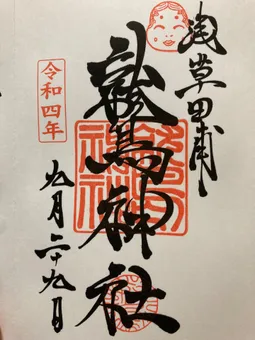 浅草田甫
鷲神社
令和四年
九月二十九日